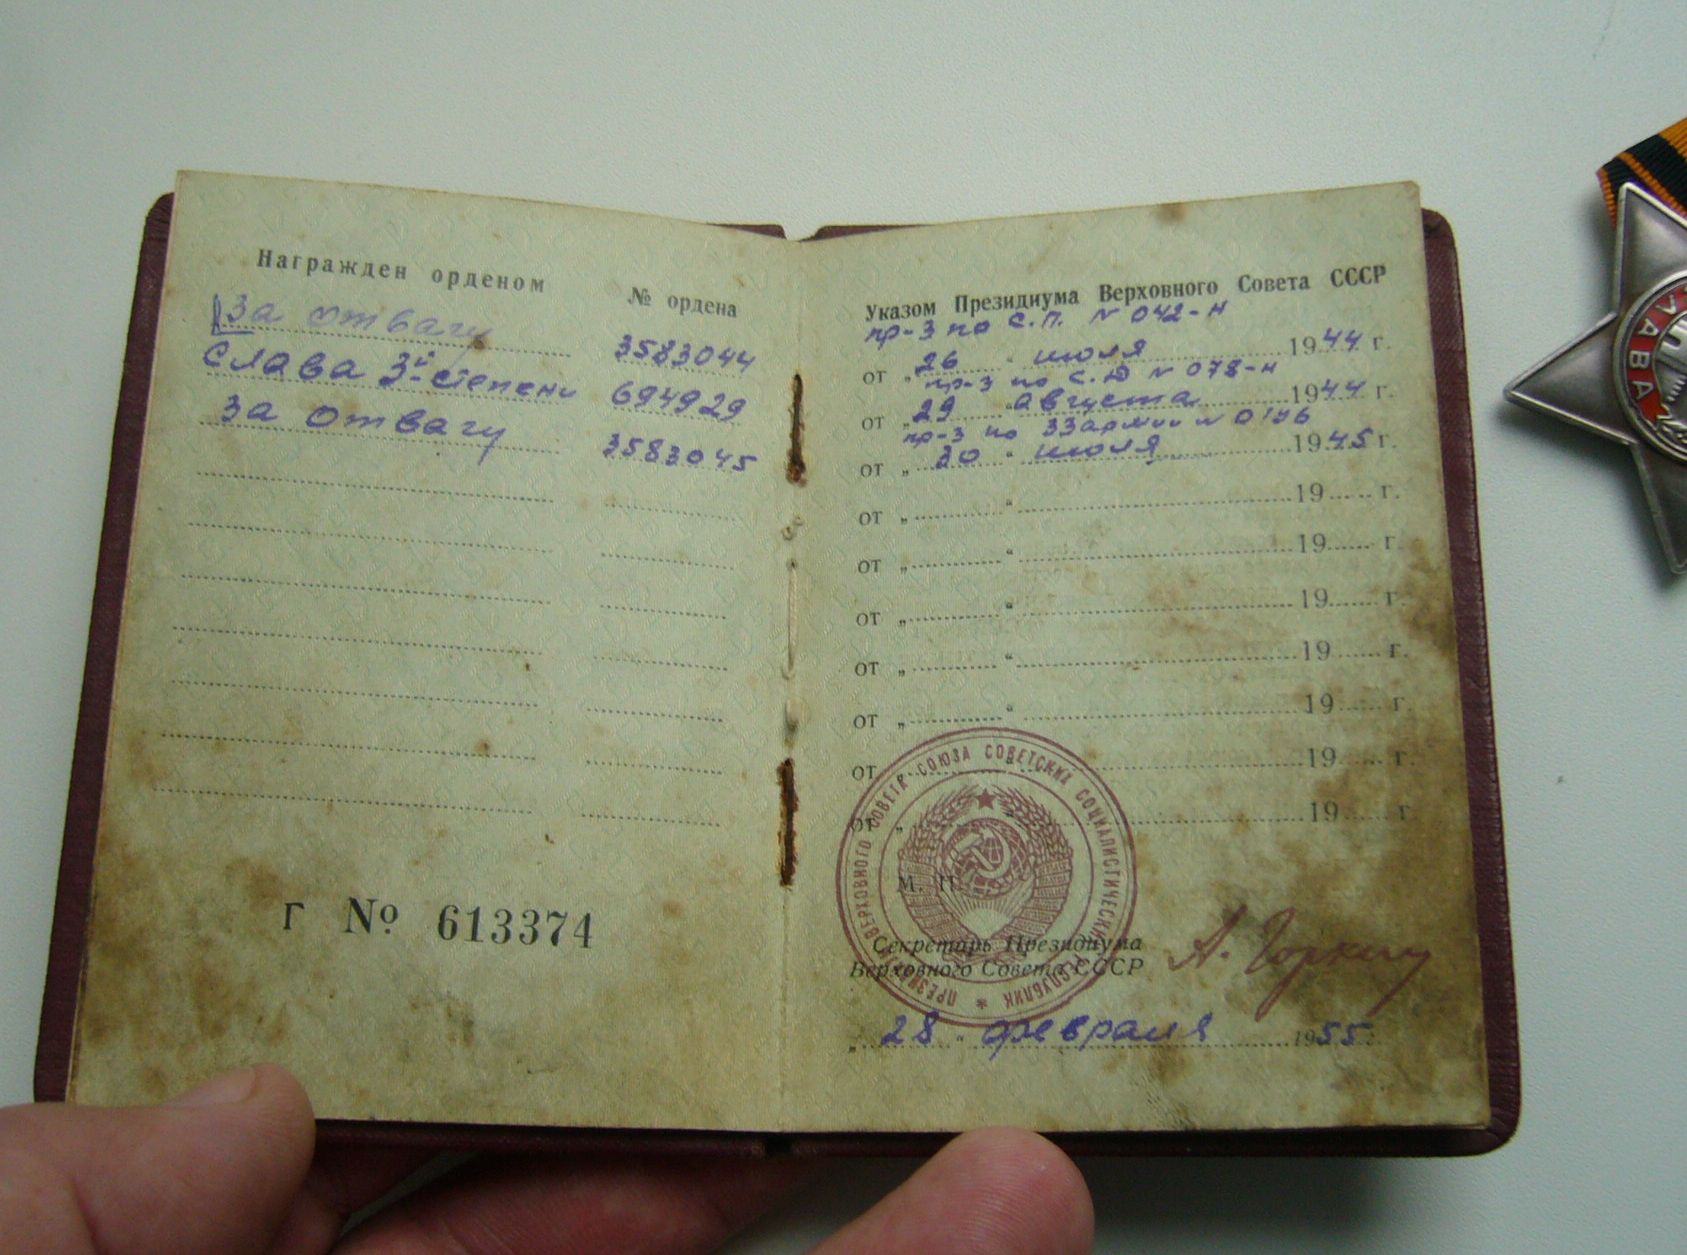 Награжден орденом № ордена
За отвагу 3583044
Слава 3й степени 694929
За отвагу 3583045
Г № 613374
Указом Президиума Верховного Совета СССР
пр-з по С.П. № 042-н
от „ 26 " июля 1944 г.
пр-з по С.Д № 078-н
от „ 29 " августа 1944 г.
пр-з по 33 армии № 0146
от „ 30 " июля 1945 г.
от „ " 19 г.
от „ " 19 г.
от „ " 19 г.
от „ " 19 г.
от „ " 19 г.
от „ " 19 г.
от „ " 19 г
ПРЕЗИДИУМ ВЕРХОВНОГО СОВЕТА СОЮЗА СОВЕТСКИХ СОЦИАЛИСТИЧЕСКИХ РЕСПУБЛИК
М. П.
Секретарь Президиума
Верховного Совета СССР А. Горкин
„ 28 " февраля 1955 г.
ЛАВА